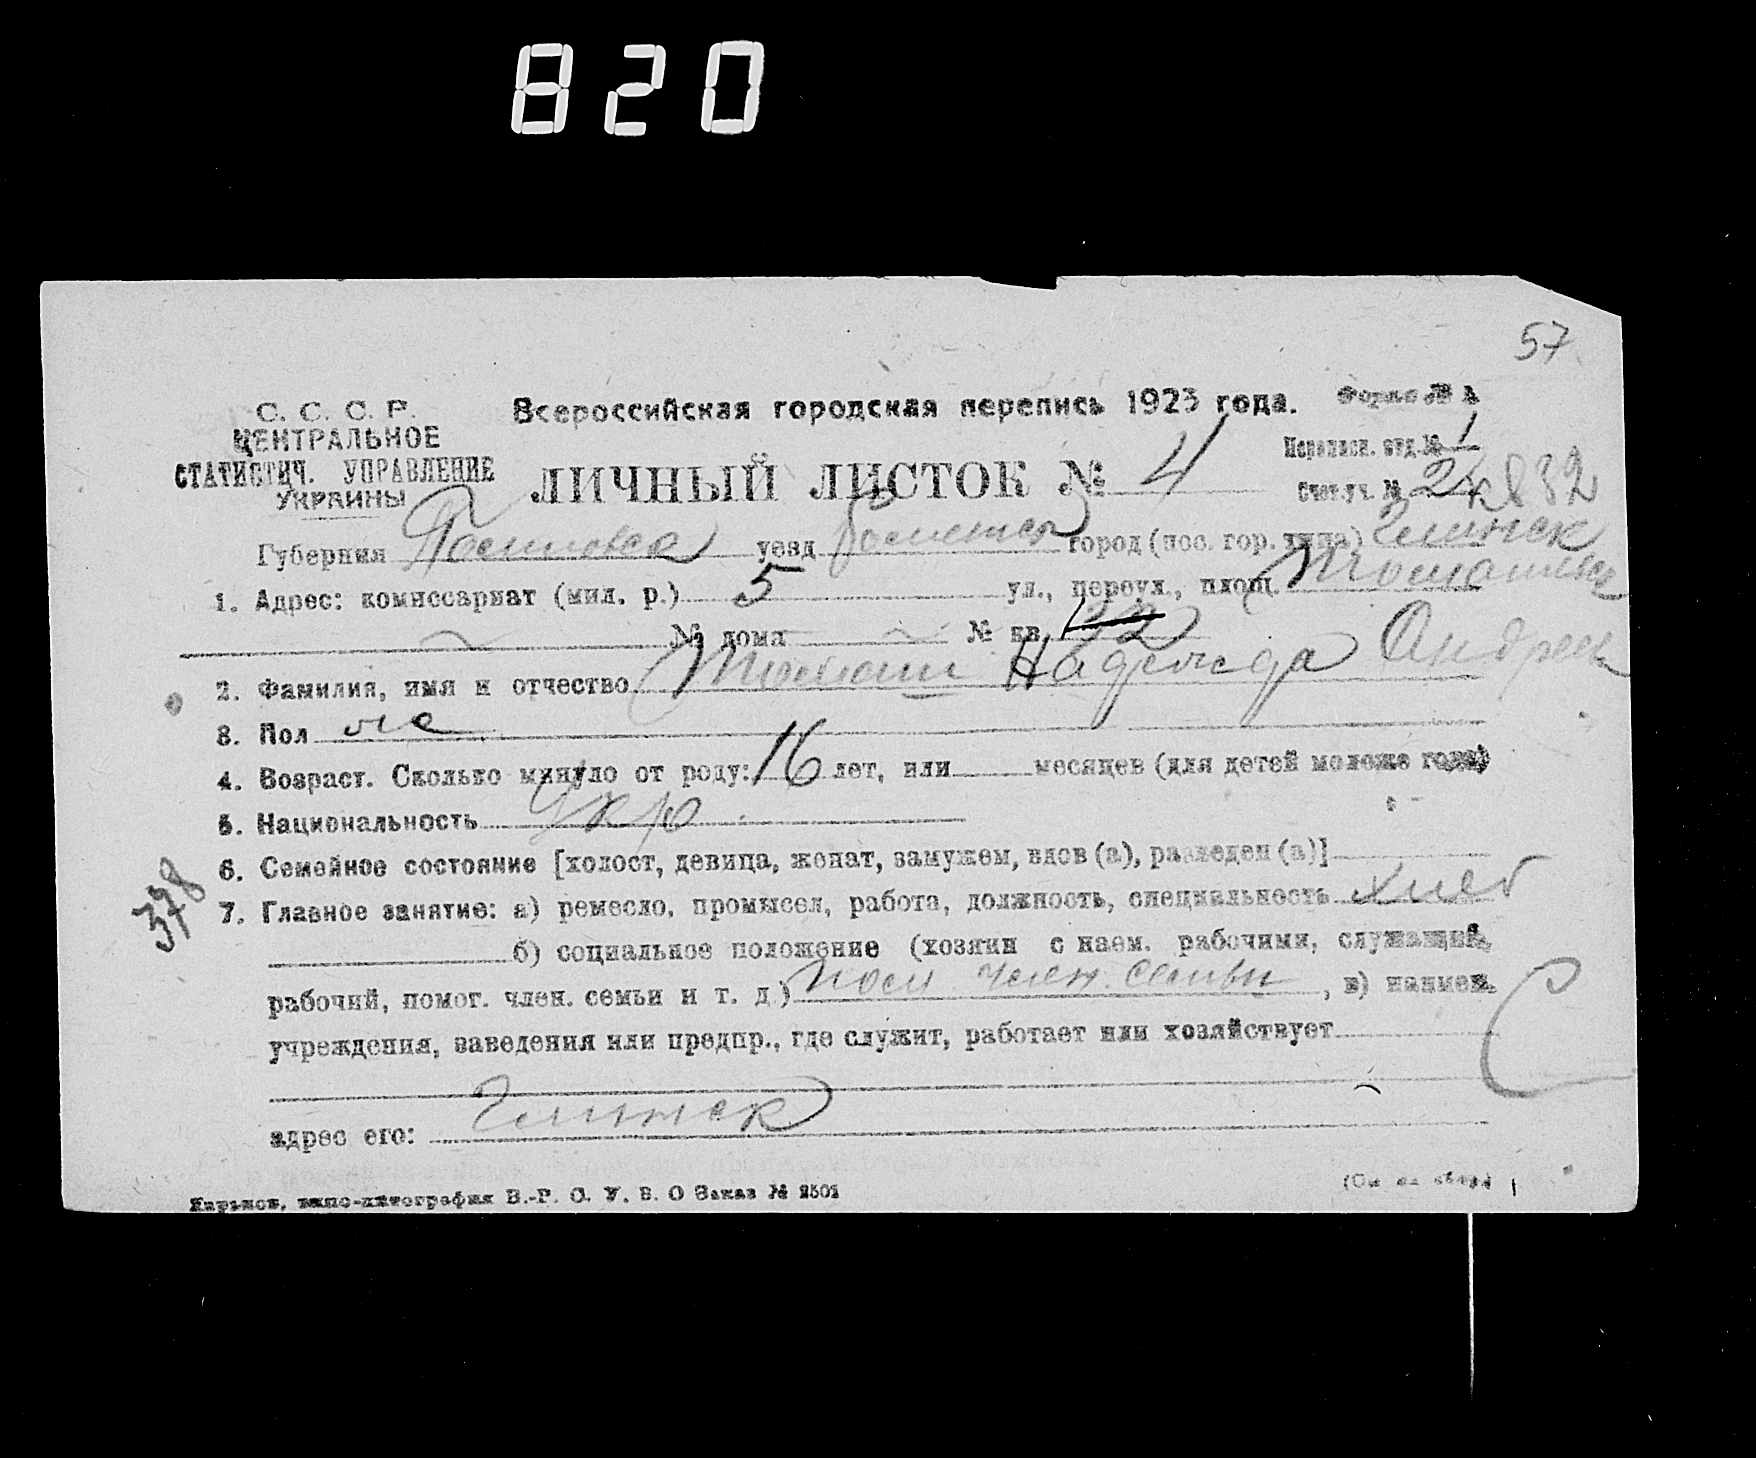 820
57
С. С. С. Р.
ЦЕНТРАЛЬНОЕ
СТАТИСТИЧ. УПРАВЛЕНИЕ
УКРАИНЫ
Всероссийская городская перепись 1923 года.
Форма №
Переписн. отд. № 1
ЛИЧНЫЙ ЛИСТОК № 4
Счет. уч. № 24
832
Губерния уезд город (пос. гор. типа) Глинск
1. Адрес: комиссариат (мил. р.) 5 ул., переул., площ.
№ дома № кв.
2. Фамилия, имя и отчество Надежда Андреев
3. Пол же
4. Возраст. Сколько минуло от роду: 16 лет, или месяцев (для детей моложе года)
5. Национальность Укр
6. Семейное состояние [холост, девица, женат, замужем, вдов (а), разведен (а)]
378
7. Главное занятие: а) ремесло, промысел, работа, должность, специальность хлеб
б) социальное положение (хозяин с наем. рабочими, служащий,
рабочий, помог. член. семьи и т. д.) пом член. семьи, в) наимен.
учреждения, заведения или предпр., где служит, работает или хозяйствует
адрес его: Глинск
Харьков, типо-литография В.-У. С. У. В. О Заказ № 2501